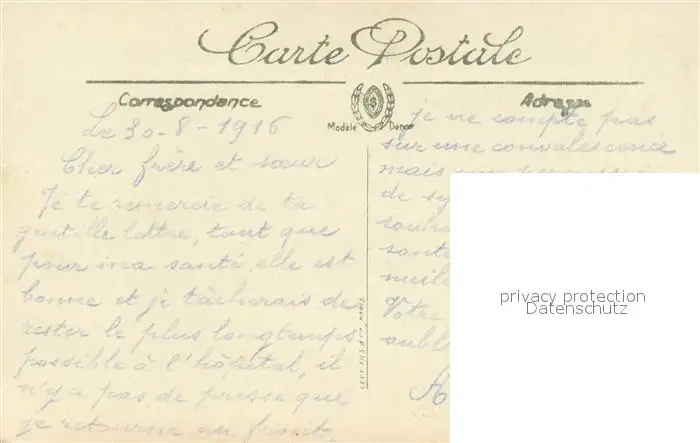 Carte Postale
Correspondance
Adresse
Modèle Déposé
Le 30-8-1916
Cher frère et sœur
Je te remercie de ta
gentille lettre, tant que
pour ma santé, elle est
bonne et je tâcherais de
rester le plus longtemps
possible à l'hôpital, il
n'ya pas de presse que
je retourne au front.
LEVY FILS & Cie, PARIS
je ne compte pas
sur une convalescence
mais
de
santé
meil
Votre
oubl
A
privacy protection
Datenschutz